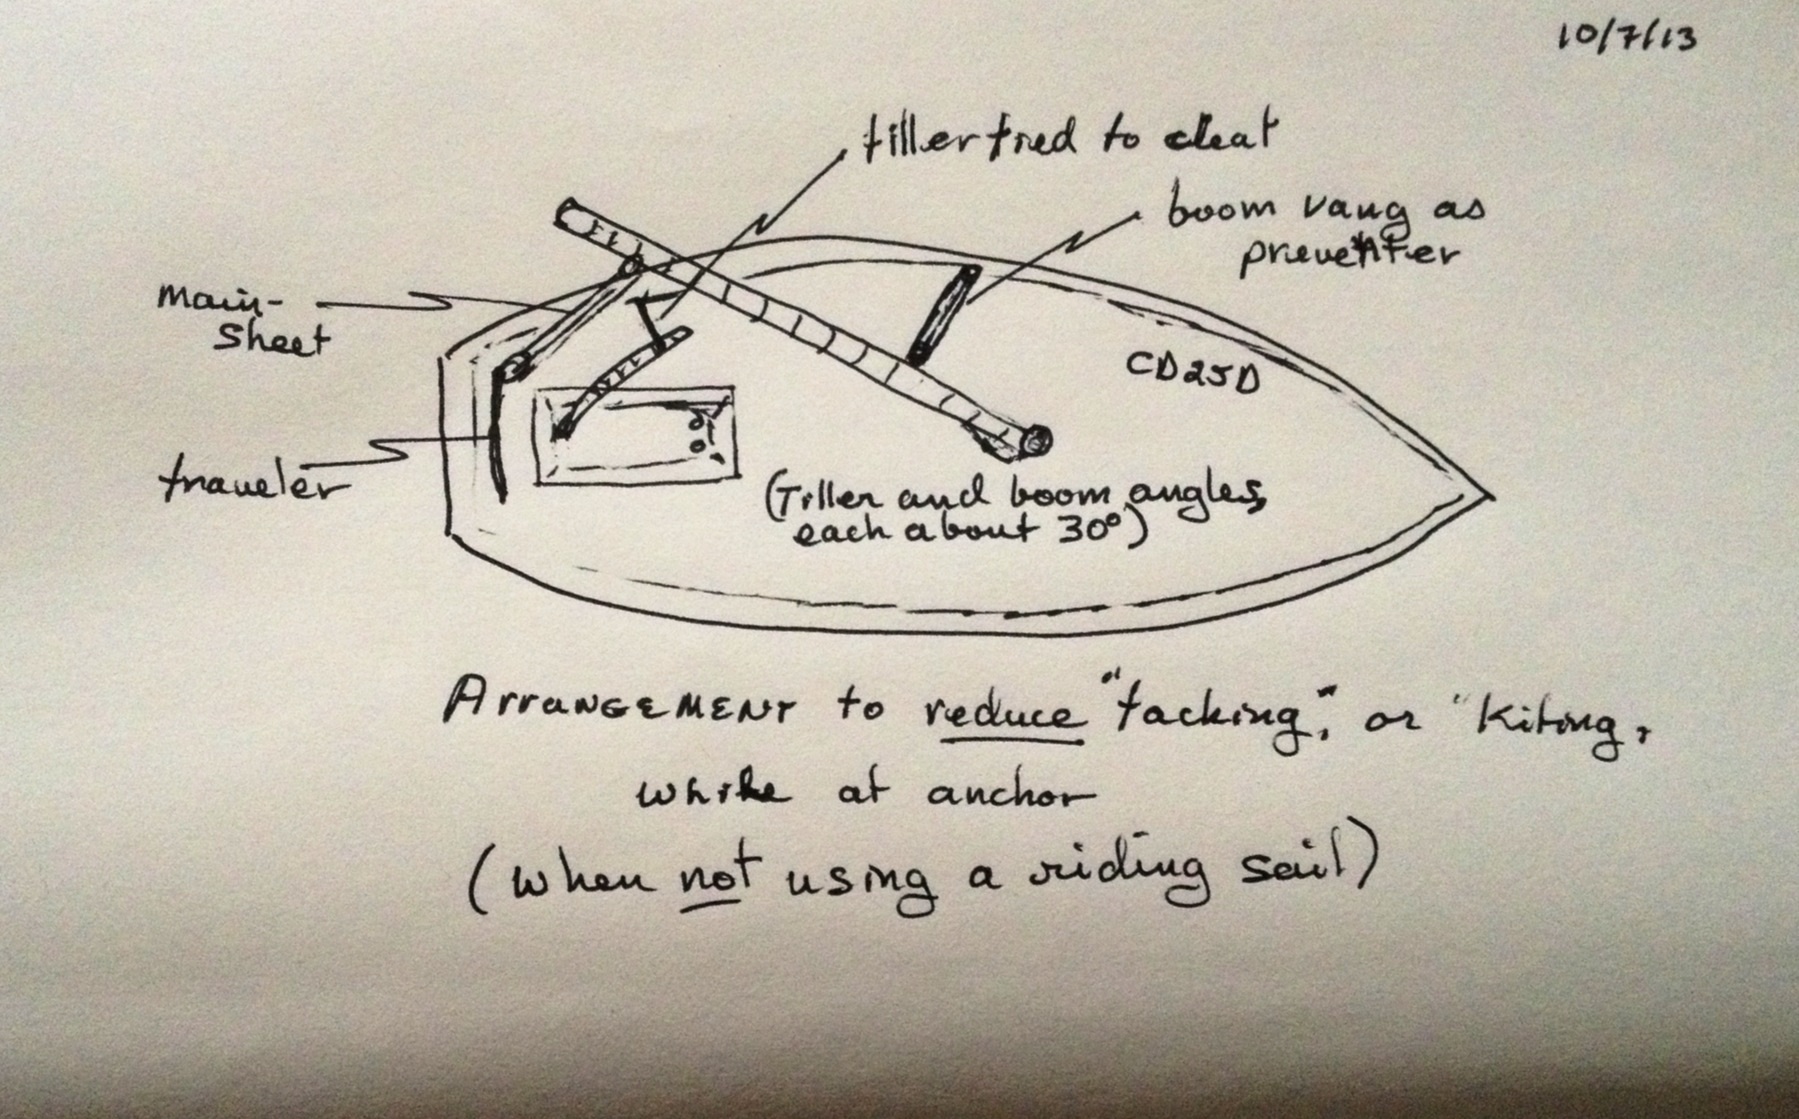 10/7/13
tiller tied to cleat
boom vang as
preventer
main-
sheet
CD25D
traveler
(Tiller and boom angles,
each about 30°)
ARRANGEMENT to reduce "tacking," or "Kiting,
while at anchor
(when not using a riding sail)